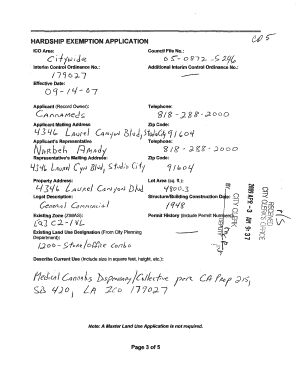 CD 5
HARDSHIP EXEMPTION APPLICATION
ICO Area: Council File No.:
Citywide 05-0872-S246
Interim Control Ordinance No.: Additional Interim Control Ordinance No.:
179027
Effective Date:
09-14-07
Applicant (Record Owner): Telephone:
Cannameds 818-288-2000
Applicant Mailing Address Zip Code:
4346 Laurel Canyon Blvd, Studio City 91604
Applicant's Representative Telephone:
Narbeh Amady 818-288-2000
Representative's Mailing Address: Zip Code:
4346 Laurel Cyn Blvd, Studio City 91604
Property Address: Lot Area (sq. ft.):
4346 Laurel Canyon Blvd 4800.3
Legal Description: Structure/Building Construction Date:
General Commercial 1948
Existing Zone (ZIMAS): Permit History (Include Permit Numbers)
[Q]C2-1VL
Existing Land Use Designation (From City Planning
Department):
1200-Store/office combo
Describe Current Use (Include size in square feet, height, etc.):
Medical Cannabis Dispensary/Collective per CA Prop 215,
SB 420, LA ICO 179027
BY
DEPUTY
CITY CLERK
2008 APR -3 AM 9:37
RECEIVED
CITY CLERK'S OFFICE
N/S
Note: A Master Land Use Application is not required.
Page 3 of 5